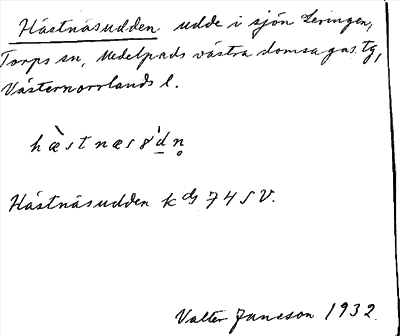 Hästnäsudden udde i sjön Leringen,
Torps sn, Medelpads västra domsagas tg,
Västernorrlands l.
hæ̀stnæs8'd̲n̥
Hästnäsudden k db 74 SV.
Valter Jansson 1932.